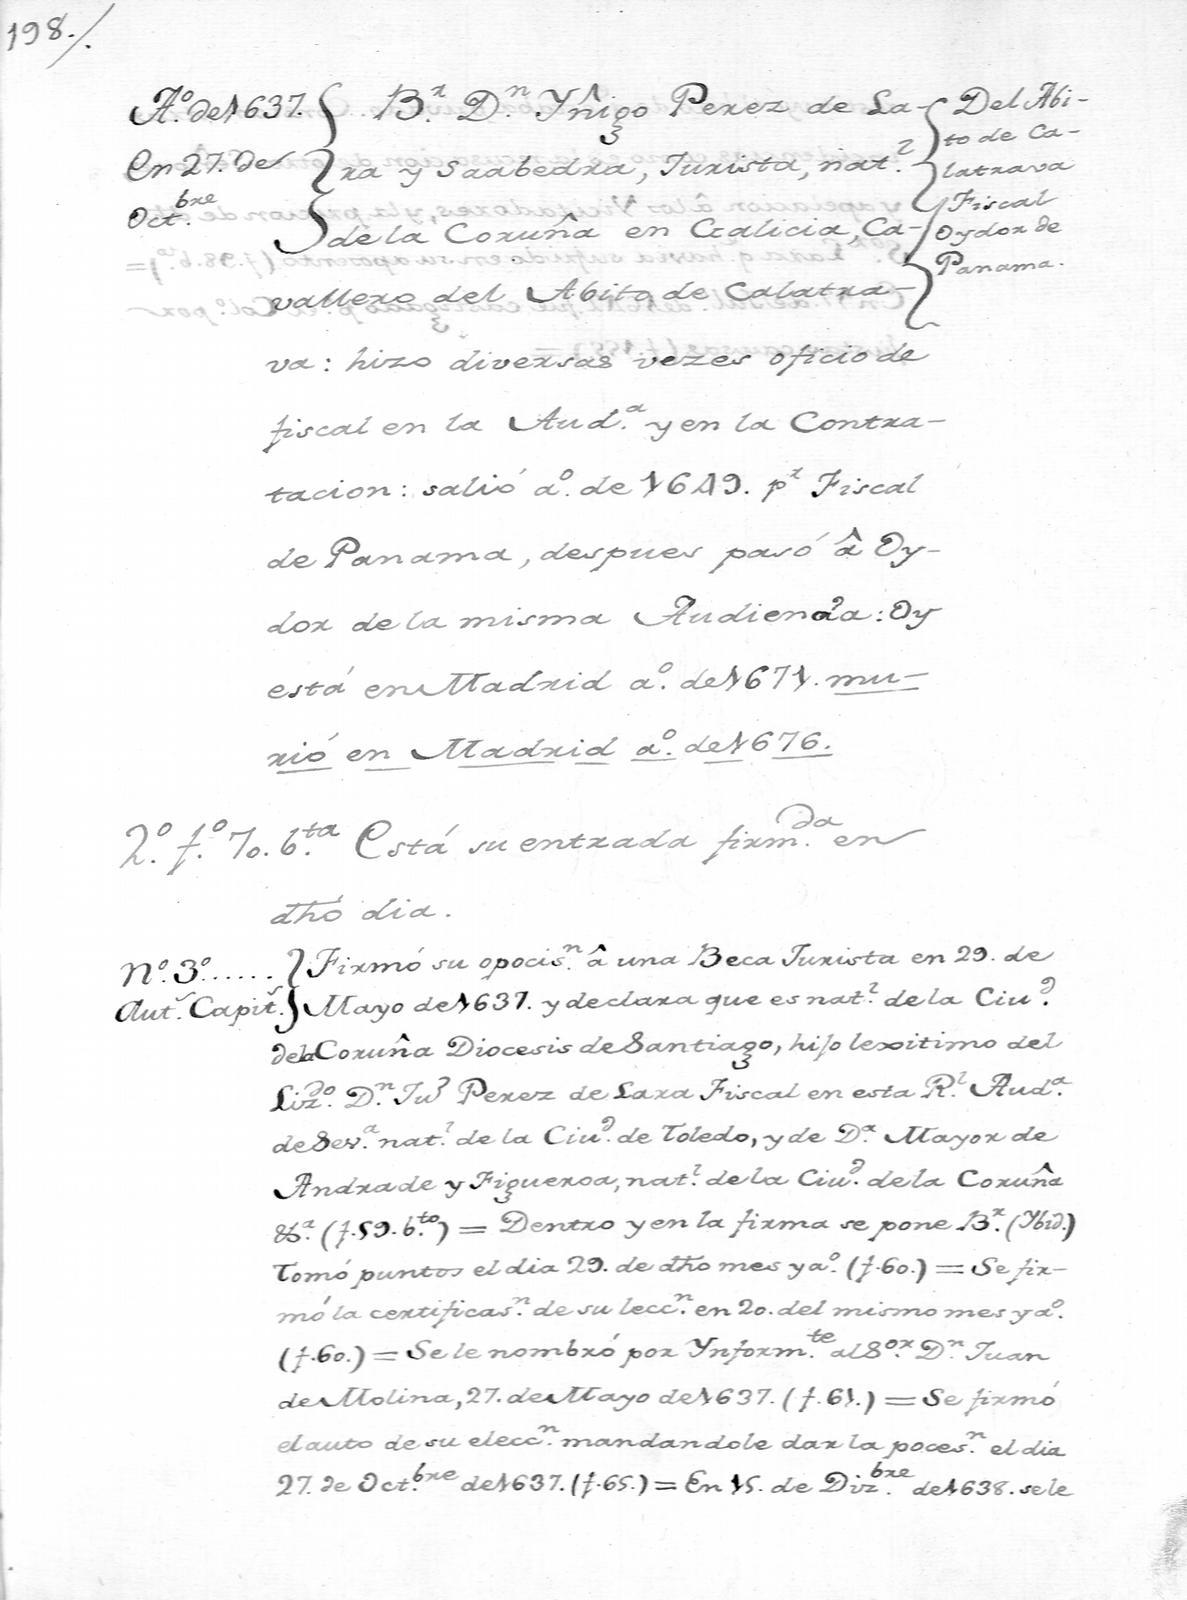 198./
Aº. de 1637.
En 27. de
Oct.bre
Br. Dn. Yñigo Perez de La-
ra y Saabedra, Jurista, nat.l
de la Coruña en Galicia, Ca-
vallero del Abito de Calatra-
va: hizo diversas vezes oficio de
fiscal en la Aud.a y en la Contra-
tacion: salió aº. de 1649. pr Fiscal
de Panama, despues pasó â Oy-
dor de la misma Audiencia: Oy
está en Madrid aº. de 1671. mu-
rió en Madrid aº. de 1676.
Del Abi-
to de Ca-
latrava
Fiscal
Oydor de
Panama.
2º. fº. 70. b.ta Está su entrada firm.da en
dhó dia.
Nº. 3º......
Aut.s Capit.s
Firmó su opocis.n â una Beca Jurista en 29. de
Mayo de 1637. y declara que es nat.l de la Ciu.d
de la Coruña Diocesis de Santiago, hijo lexitimo del
Liz.do D.n Ju.o Perez de Lara Fiscal en esta R.l Aud.a
de Sev.a nat.l de la Ciu.d de Toledo, y de D.a Mayor de
Andrade y Figueroa, nat.l de la Ciu.d de la Coruña
&.a (f.59.b.to) = Dentro y en la firma se pone B.r (Ybid.)
Tomó puntos el dia 29. de dho mes y aº. (f.60.) = Se fir-
mó la certificas.n de su lecc.n en 20. del mismo mes y aº.
(f.60.) = Se le nombró por Ynform.te al S.or D.n Juan
de Molina, 27. de Mayo de 1637. (f.61.) = Se firmó
el auto de su elecc.n mandandole dar la poces.n el dia
27. de Oct.bre de 1637. (f.65.) = En 15. de Diz.bre de 1638. se le